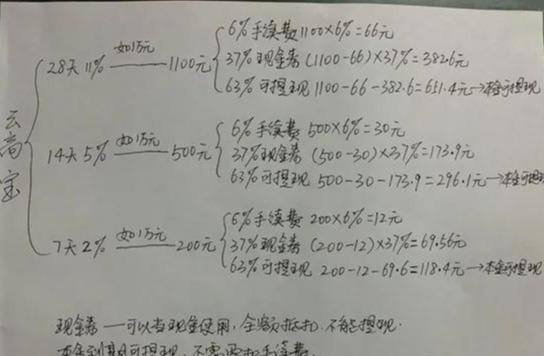 云商宝
28天 11% 如1万元 1100元
6%手续费 1100×6%=66元
37%现金券 (1100-66)×37%=382.6元
63%可提现 1100-66-382.6=651.4元→本金可提现
14天 5% 如1万元 500元
6%手续费 500×6%=30元
37%现金券 (500-30)×37%=173.9元
63%可提现 500-30-173.9=296.1元→本金可提现
7天 2% 如1万元 200元
6%手续费 200×6%=12元
37%现金券 (200-12)×37%=69.56元
63%可提现 200-12-69.6=118.4元→本金可提现
现金券—可以当现金使用,全额抵扣,不能提现.
本金到期可提现,不需要扣手续费.